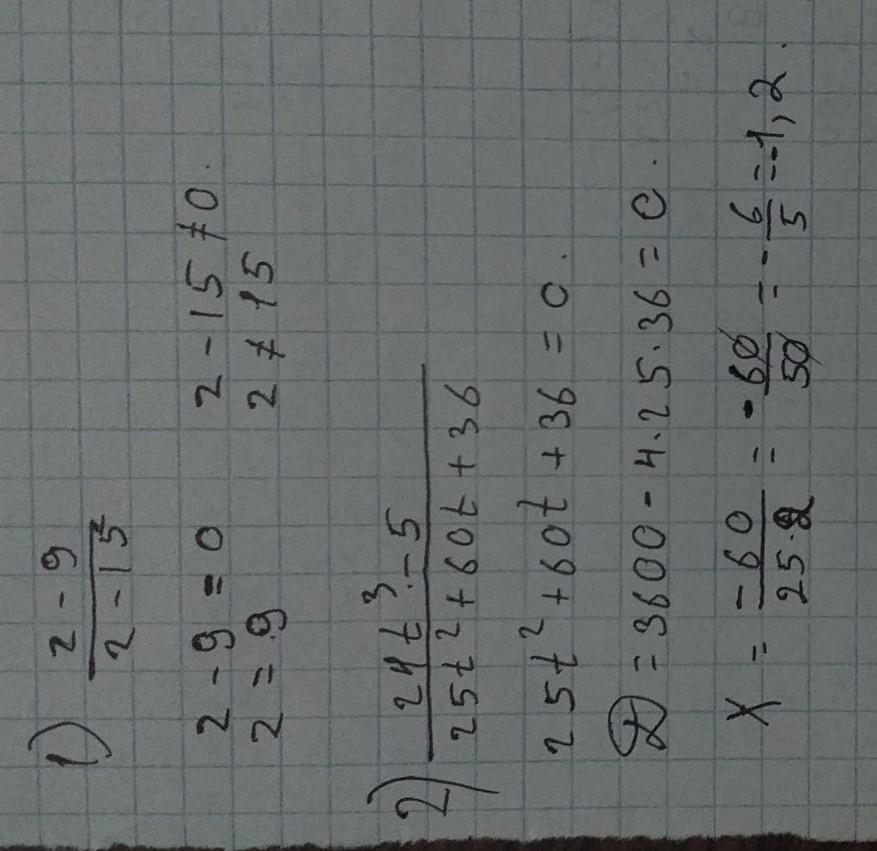 1) z - 9 / z - 15
z - 9 = 0   z - 15 ≠ 0.
z = 9   z ≠ 15
2) 24t³ - 5 / 25t² + 60t + 36
25t² + 60t + 36 = 0.
D = 3600 - 4.25.36 = 0.
X = -60 / 25.2 = -60 / 50 = -6 / 5 = -1,2.